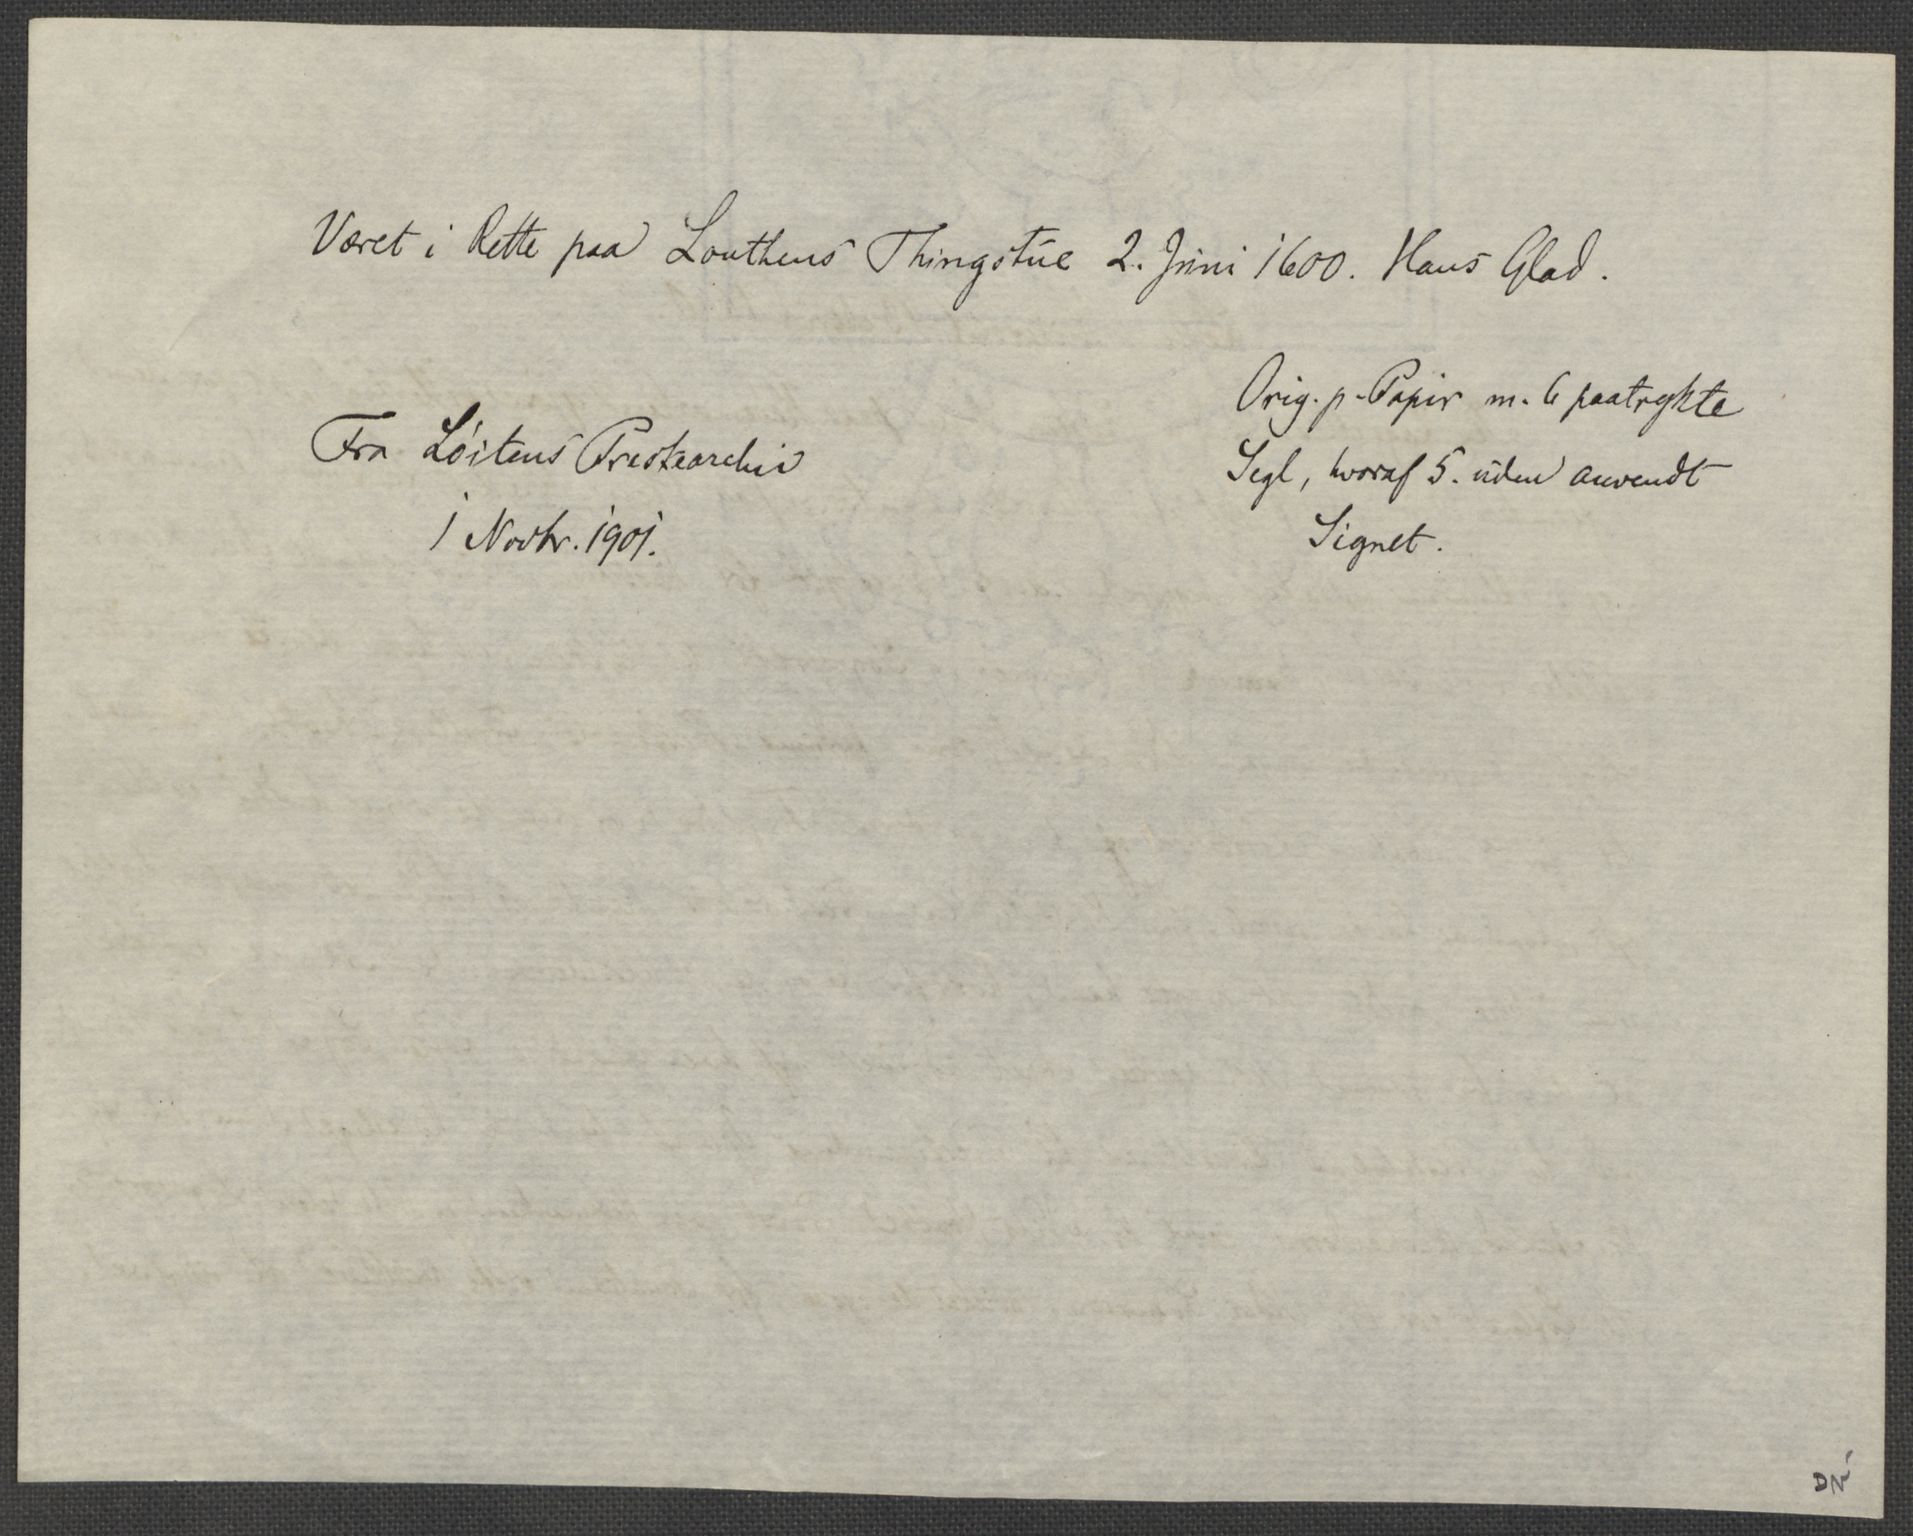 Været i Rette paa Louthens Thingstue 2. Juni 1600. Hans Glad.
Orig. p. Papir m. 6 paatrykte
Segl, hvoraf 5. uden anvendt
Signet.
Fra Löitens Prestearchiv
1 Novbr. 1901.
DN